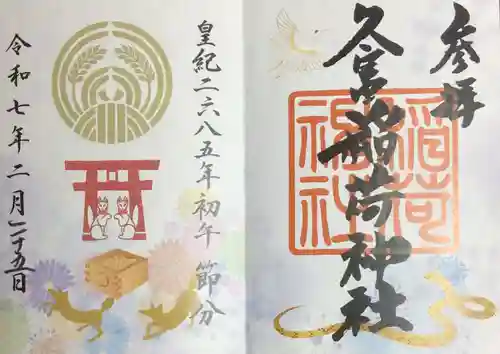 参拝
久米稲荷神社
稲荷
神社
皇紀二六八五年初午 節分
令和七年二月二十五日